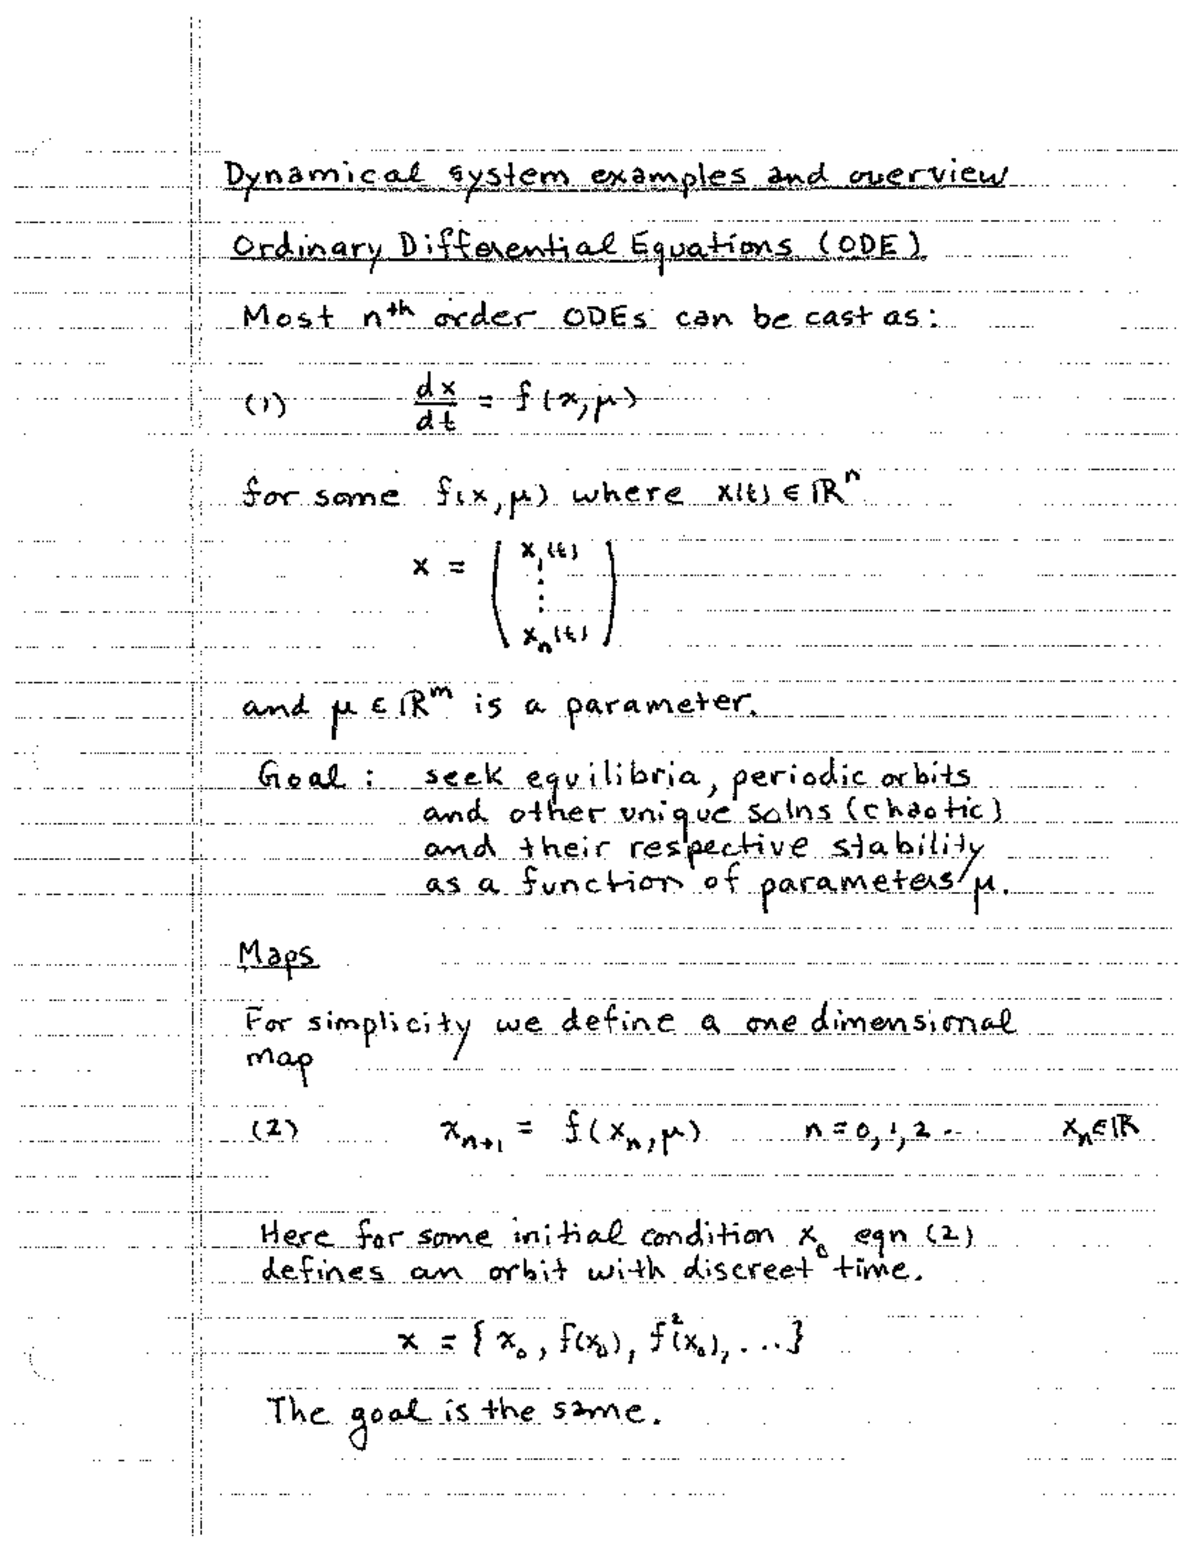 Dynamical system examples and overview
Ordinary Differential Equations (ODE)
Most nth order ODEs can be cast as:
(1) dx/dt = f(x, μ)
for some f(x, μ) where x(t) ∈ ℝⁿ
x = ( x₁(t) ⋮ xₙ(t) )
and μ ∈ ℝᵐ is a parameter.
Goal: seek equilibria, periodic orbits
and other unique solns (chaotic)
and their respective stability
as a function of parameters μ.
Maps
For simplicity we define a one dimensional
map
(2) xₙ₊₁ = f(xₙ, μ) n = 0, 1, 2 ... xₙ ∈ ℝ
Here for some initial condition x₀ eqn (2)
defines an orbit with discreet time.
x = { x₀, f(x₀), f²(x₀), ... }
The goal is the same.